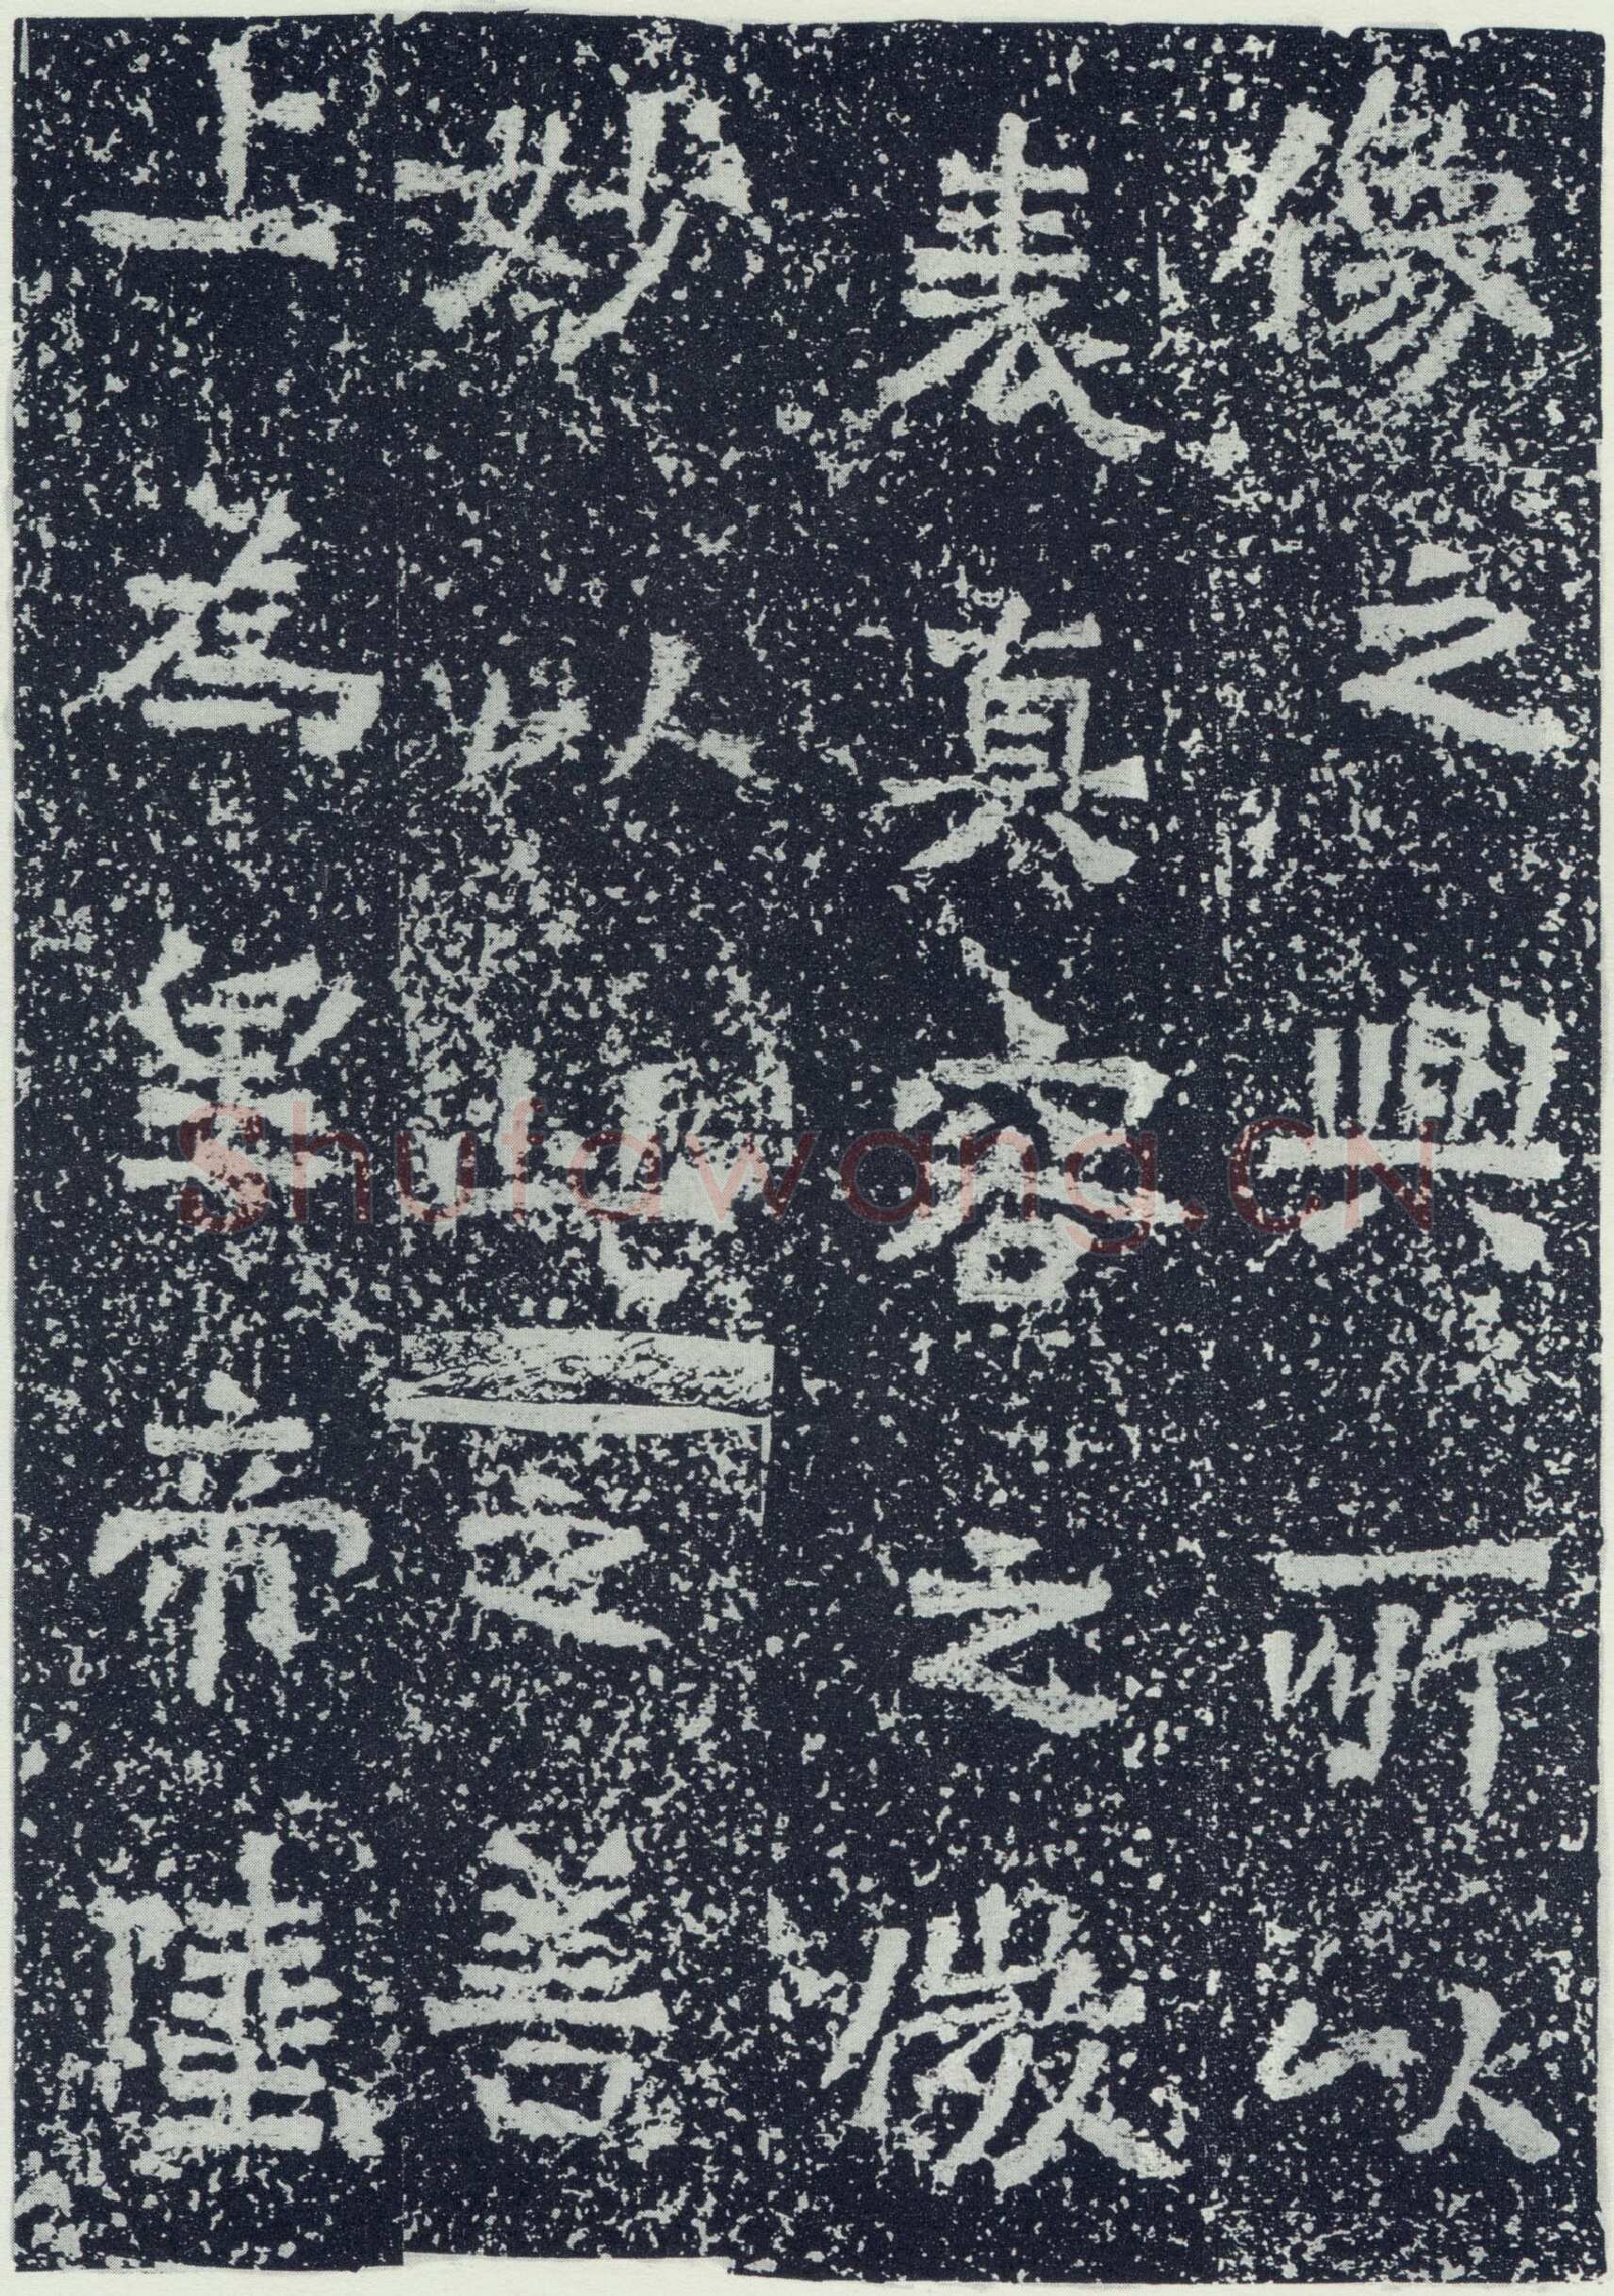 像之興所以
表真容之微
妙以……之善
上為皇帝陛
Shufawang.CN